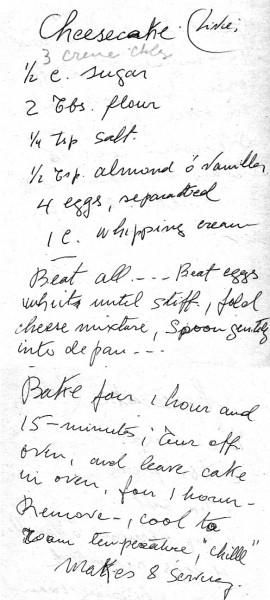 Cheesecake.
3 creme
1/2 c. sugar
2 Tbs. flour
1/4 tsp salt.
1/2 tsp. almond ó Vanilla
4 eggs, separated
1 c. whipping cream
Beat all---- Beat eggs
whits until stiff, fold
cheese mixture, Spoon gently
into de pan---
Bake for 1 hour and
15-minutes; turn off
oven, and leave cake
in oven, for 1 hour-
Remove-, cool to
room temperature, "chill"
Makes 8 serving.